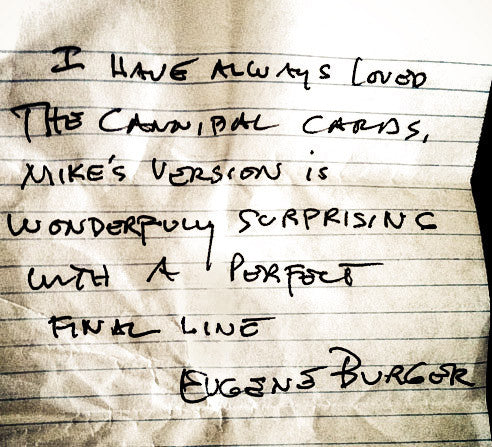 I HAVE ALWAYS LOVED
THE CANNIBAL CARDS,
MIKE'S VERSION IS
WONDERFULLY SURPRISING
WITH A PERFECT
FINAL LINE
EUGENE BURGER